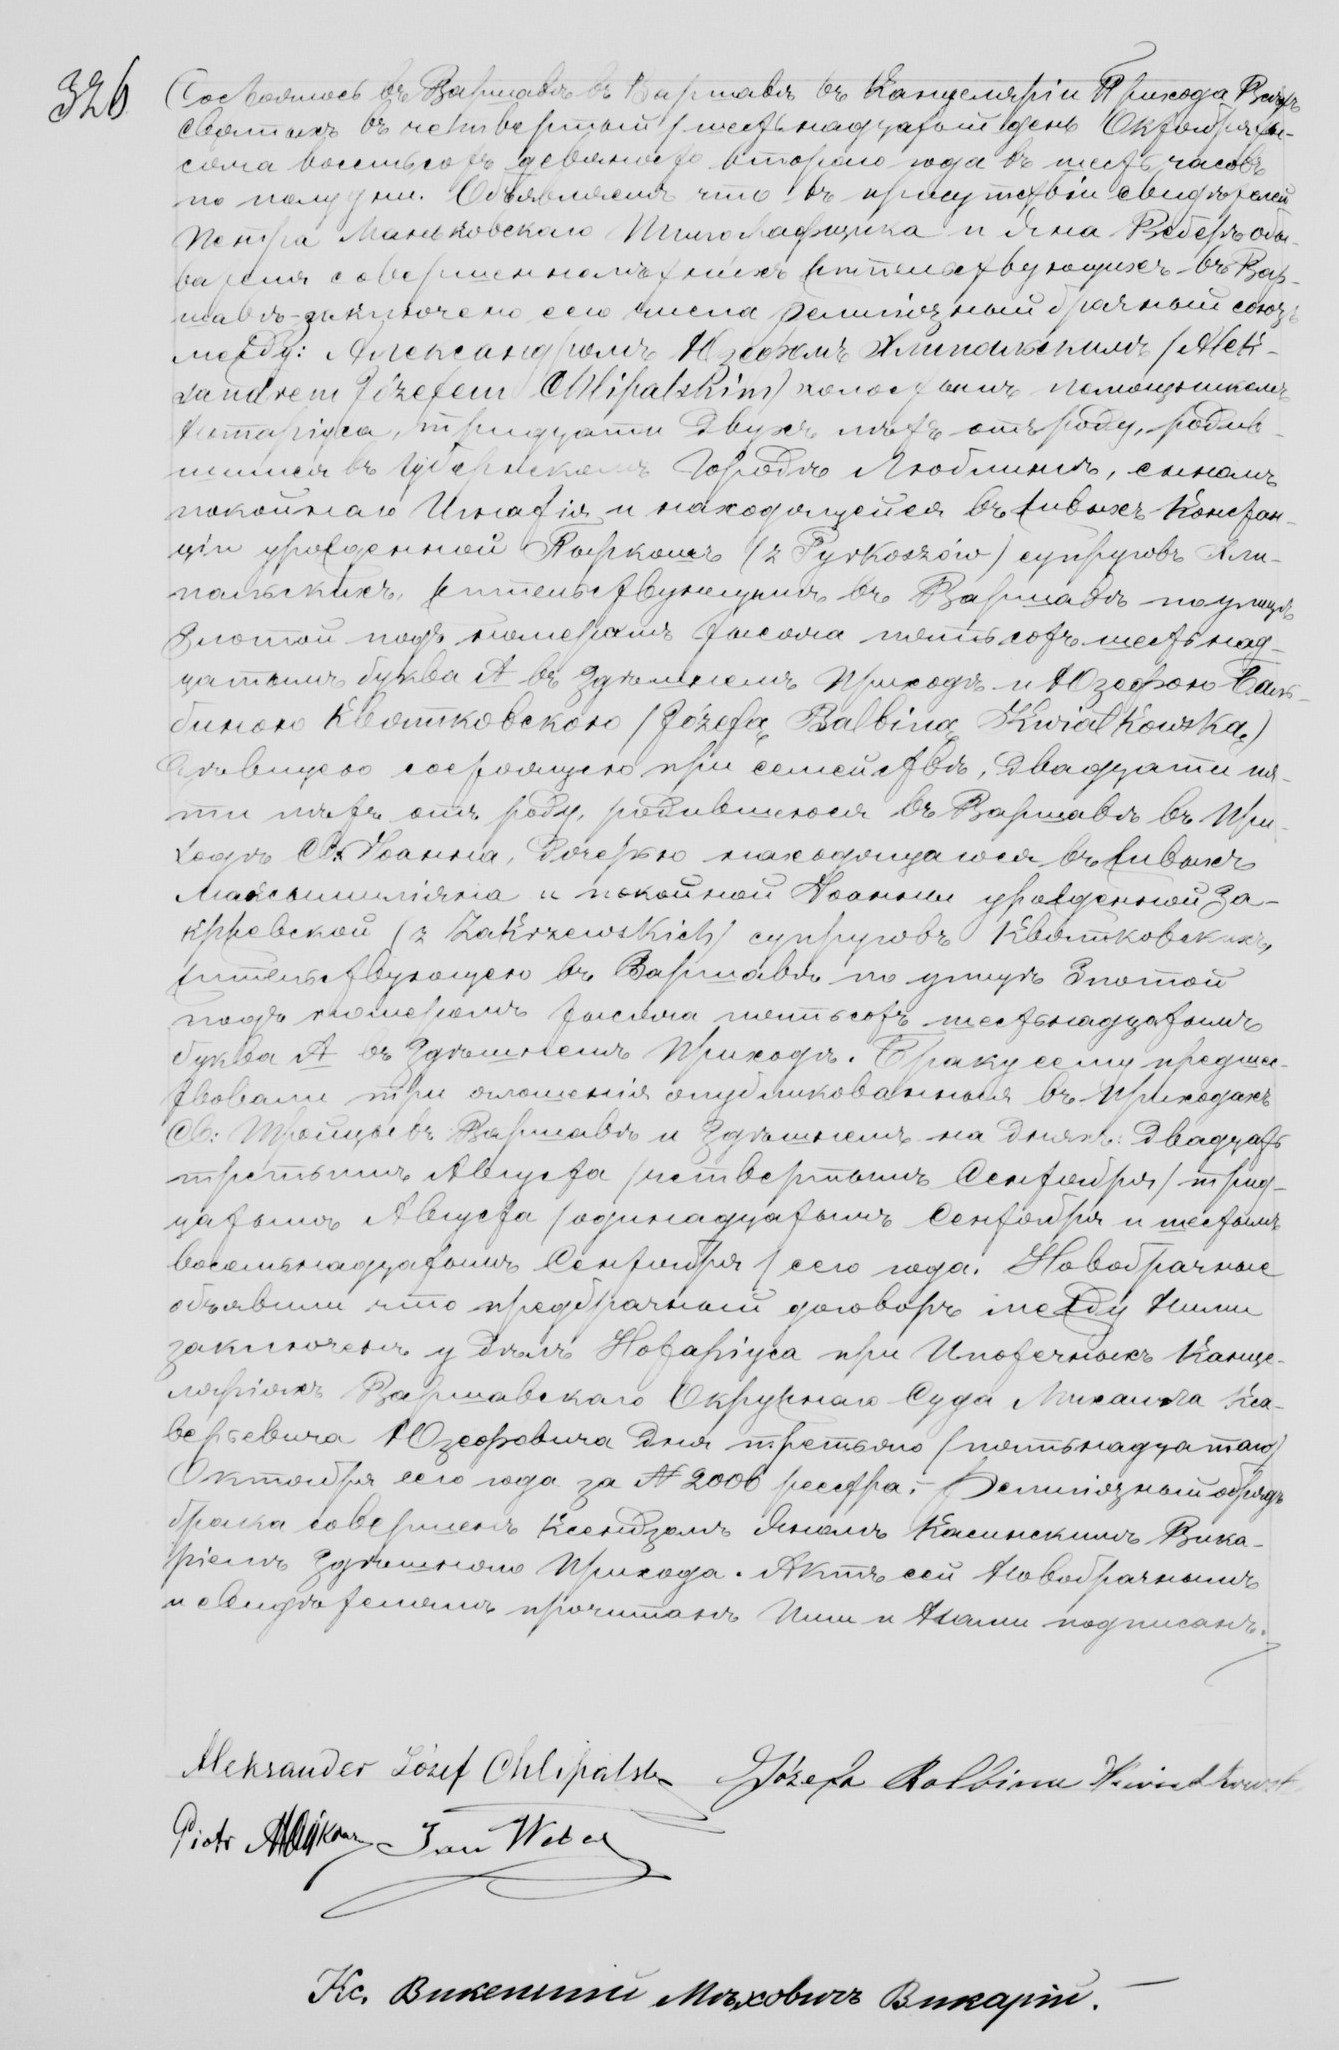 326
Состоялось въ Варшавѣ въ Варшавѣ въ Канцеляріи Прихода Всѣхъ
Святыхъ въ четвертый /шестьнадцатый день Октября ты-
сяча восемьсотъ девяносто втораго года въ шесть часовъ
по полудни. Объявляемъ что въ присутствіи свидѣтелей
Петра Маньковскаго и Яна Веберъ обы-
вателя совершеннолѣтнихъ жительствующихъ въ Вар-
шавѣ заключено сего числа религіозный брачный союзъ
между: Александромъ Юзефомъ Хлипальскимъ /Alek-
sandrem Józefem Chlipalskim/ холостымъ помощникомъ
Нотаріуса, тридцати двухъ лѣтъ отъ роду, родив-
шимся въ Губернскомъ Городѣ Люблинѣ, сыномъ
покойнаго Игнатія и находящейся въ живыхъ Констан-
ціи урожденной Пыркошъ (z Pyrkoszów) супруговъ Хли-
пальскихъ, жительствующимъ въ Варшавѣ по улицѣ
Злотой подъ номеромъ тысяча пятьсотъ шестьнад-
цатымъ буква А въ здѣшнемъ Приходѣ и Юзефою Баль-
биною Квятковскою /Józefą Balbiną Kwiatkowską/
дѣвицею состоящею при семействѣ, двадцати пя-
ти лѣтъ отъ роду, родившеюся въ Варшавѣ въ При-
ходѣ Св. Іоанна, дочерью находящагося въ живыхъ
Максымиліяна и покойной Іоанны урожденной За-
кржевской (z Zakrzewskich/ супруговъ Квятковскихъ,
жительствующею въ Варшавѣ по улицѣ Злотой
подъ номеромъ тысяча пятьсотъ шестьнадцатымъ
буква А въ здѣшнемъ Приходѣ. Браку сему предшес-
твовали три оглашенія опубликованныя въ Приходахъ
Св: Тройцы въ Варшавѣ и здѣшнемъ на дняхъ: двадцать
третьимъ Августа /четвертымъ Сентября/ трид-
цатымъ Августа /одинадцатымъ Сентября и шестымъ
восемьнадцатымъ Сентября/ сего года. Новобрачные
объявили что предбрачный договоръ между ними
заключенъ у дѣлъ Нотаріуса при Ипотечныхъ Канце-
ляріяхъ Варшавскаго Окружнаго Суда Михаила Кса-
верьевича Юзефовича дня третьяго /пятьнадцатаго/
Октября сего года за № 2000 реестра.- Религіозный обрядъ
брака совершенъ Ксендзомъ Яномъ Касинскимъ Вика-
ріемъ здѣшняго Прихода. Актъ сей Новобрачнымъ
и свидѣтелямъ прочитанъ Ими и Нами подписанъ.
Aleksander Józef Chlipalski Józefa Balbina Kwiatkowska
Piotr Jan Weber
Кс. Викентій Мѣховичъ Викарій.